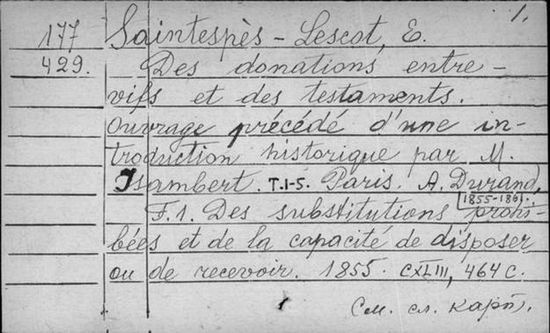 1.
177 Saintespès-Lescot, E.
429. Des donations entre-
vifs et des testaments.
Ouvrage précédé d'une in-
troduction historique par M.
Isambert. T.1-5. Paris. A. Durand,
1855-1861.
T.1. Des substitutions prohi-
bées et de la capacité de disposer
ou de recevoir. 1855. CXLIII, 464 c.
См. сл. карт.